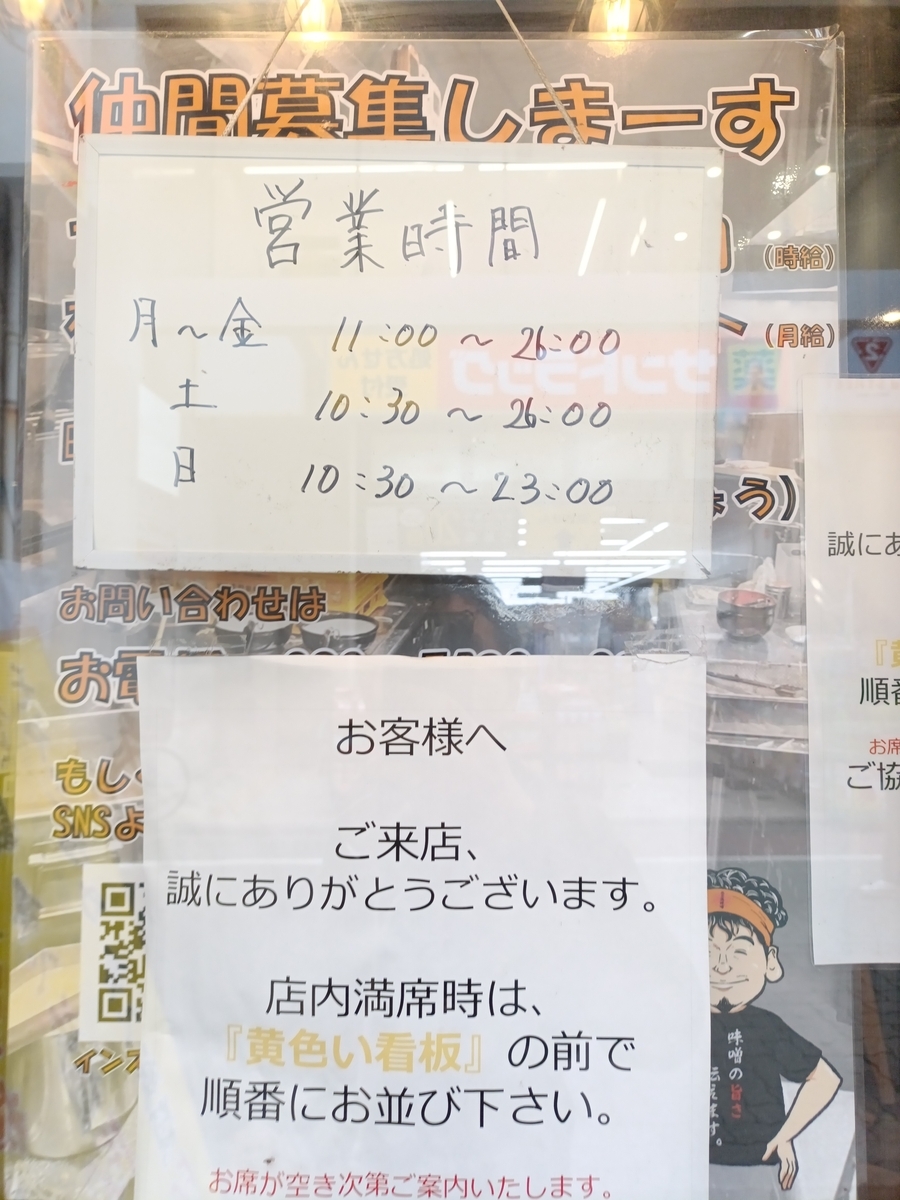 仲間募集しまーす
(時給)
(月給)
営業時間
月〜金 11:00 〜 26:00
土 10:30 〜 26:00
日 10:30 〜 23:00
ょう)
お問い合わせは
お電
もし
SNSよ
インス
お客様へ
ご来店、
誠にありがとうございます。
店内満席時は、
『黄色い看板』の前で
順番にお並び下さい。
お席が空き次第ご案内いたします。
誠にあ
『黄
順番
お席
ご協
味噌の旨さ
伝えます。